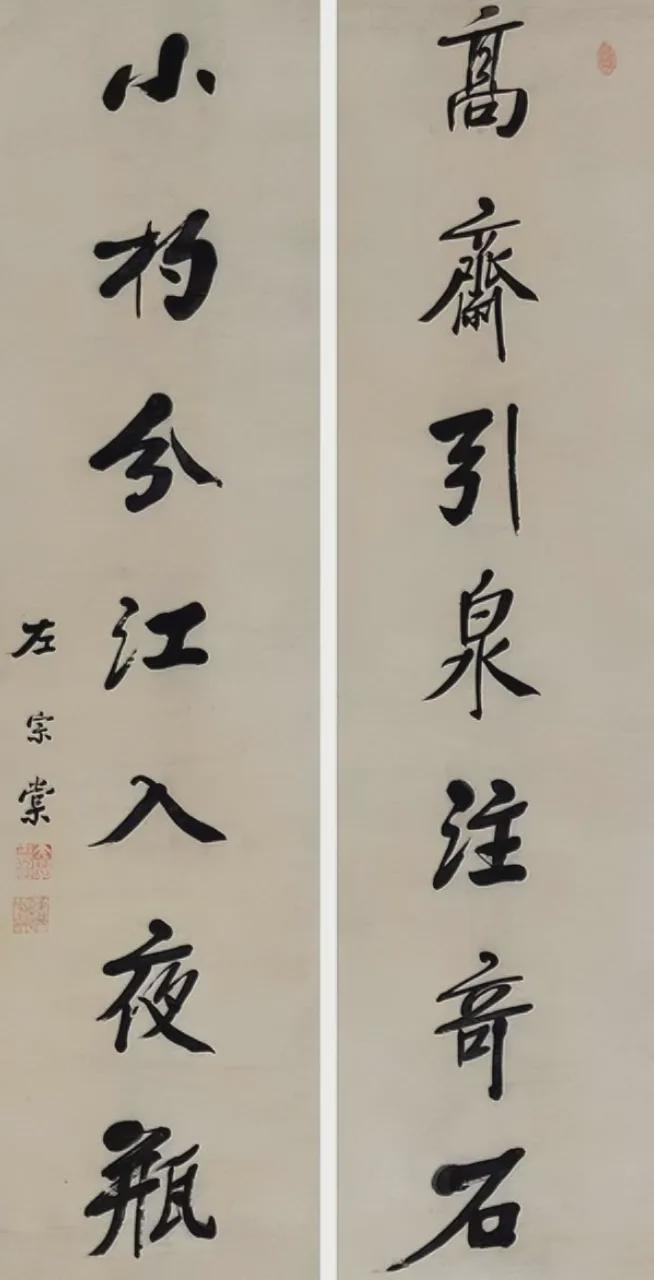 高齋引泉注奇石
小杓分江入夜瓶
左宗棠